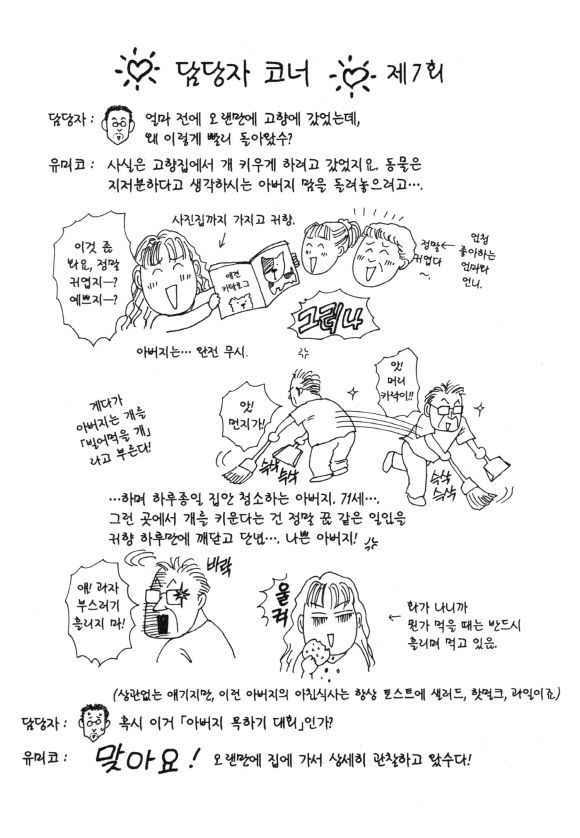 담당자 코너 제7회
담당자 : 얼마 전에 오랜만에 고향에 갔었는데,
왜 이렇게 빨리 돌아왔수?
유미코 : 사실은 고향집에서 개 키우게 하려고 갔었지요. 동물은
지저분하다고 생각하시는 아버지 맘을 돌려놓으려고….
사진집까지 가지고 귀향.
이것 좀
봐요, 정말
귀엽지—?
예쁘지—?
애견
카탈로그
정말
귀엽다
~.
엄청
좋아하는
엄마와
언니.
그러나
아버지는… 완전 무시.
게다가
아버지는 개를
「빌어먹을 개」
라고 부른다!
앗!
먼지가!
앗!
머리
카락이!!
슥삭
슥삭
슥삭
슥삭
…하며 하루종일 집안 청소하는 아버지. 71세….
그런 곳에서 개를 키운다는 건 정말 꿈 같은 일임을
귀향 하루만에 깨닫고 단념…. 나쁜 아버지!
얘! 과자
부스러기
흘리지 마!
버럭
울컥
← 화가 나니까
뭔가 먹을 때는 반드시
흘리며 먹고 있음.
(상관없는 얘기지만, 이전 아버지의 아침식사는 항상 토스트에 샐러드, 핫밀크, 과일이죠)
담당자 : 혹시 이거 「아버지 욕하기 대회」인가?
유미코 : 맞아요! 오랜만에 집에 가서 상세히 관찰하고 왔수다!